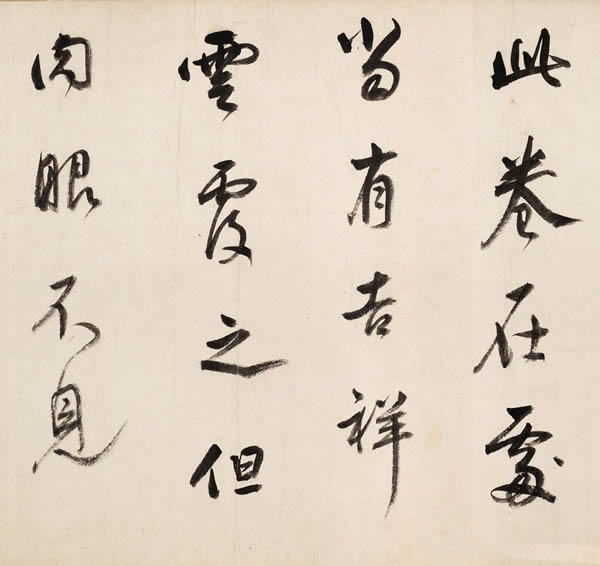 此卷在處
當有吉祥
雲覆之但
肉眼不見